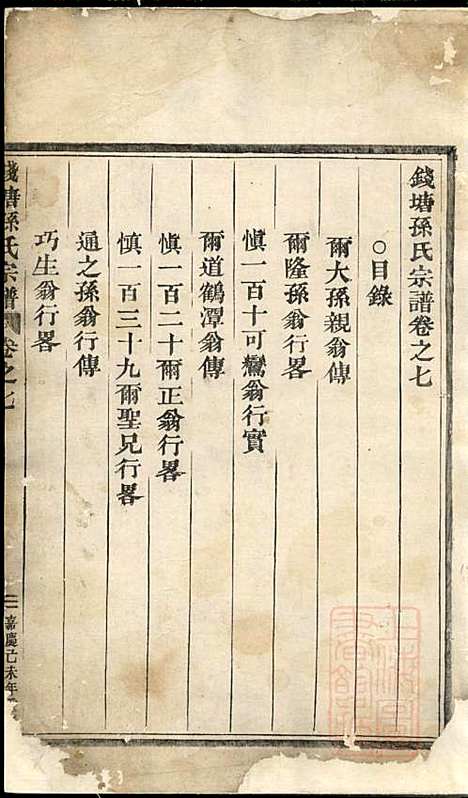 錢塘孫氏宗譜卷之七
○目錄
爾大孫親翁傳
爾隆孫翁行畧
愼一百十可鸞翁行實
爾道鶴潭翁傳
愼一百二十爾正翁行畧
愼一百三十九爾聖兄行畧
通之孫翁行傳
巧生翁行畧
錢塘孫氏宗譜
卷之七
一
嘉慶己未年